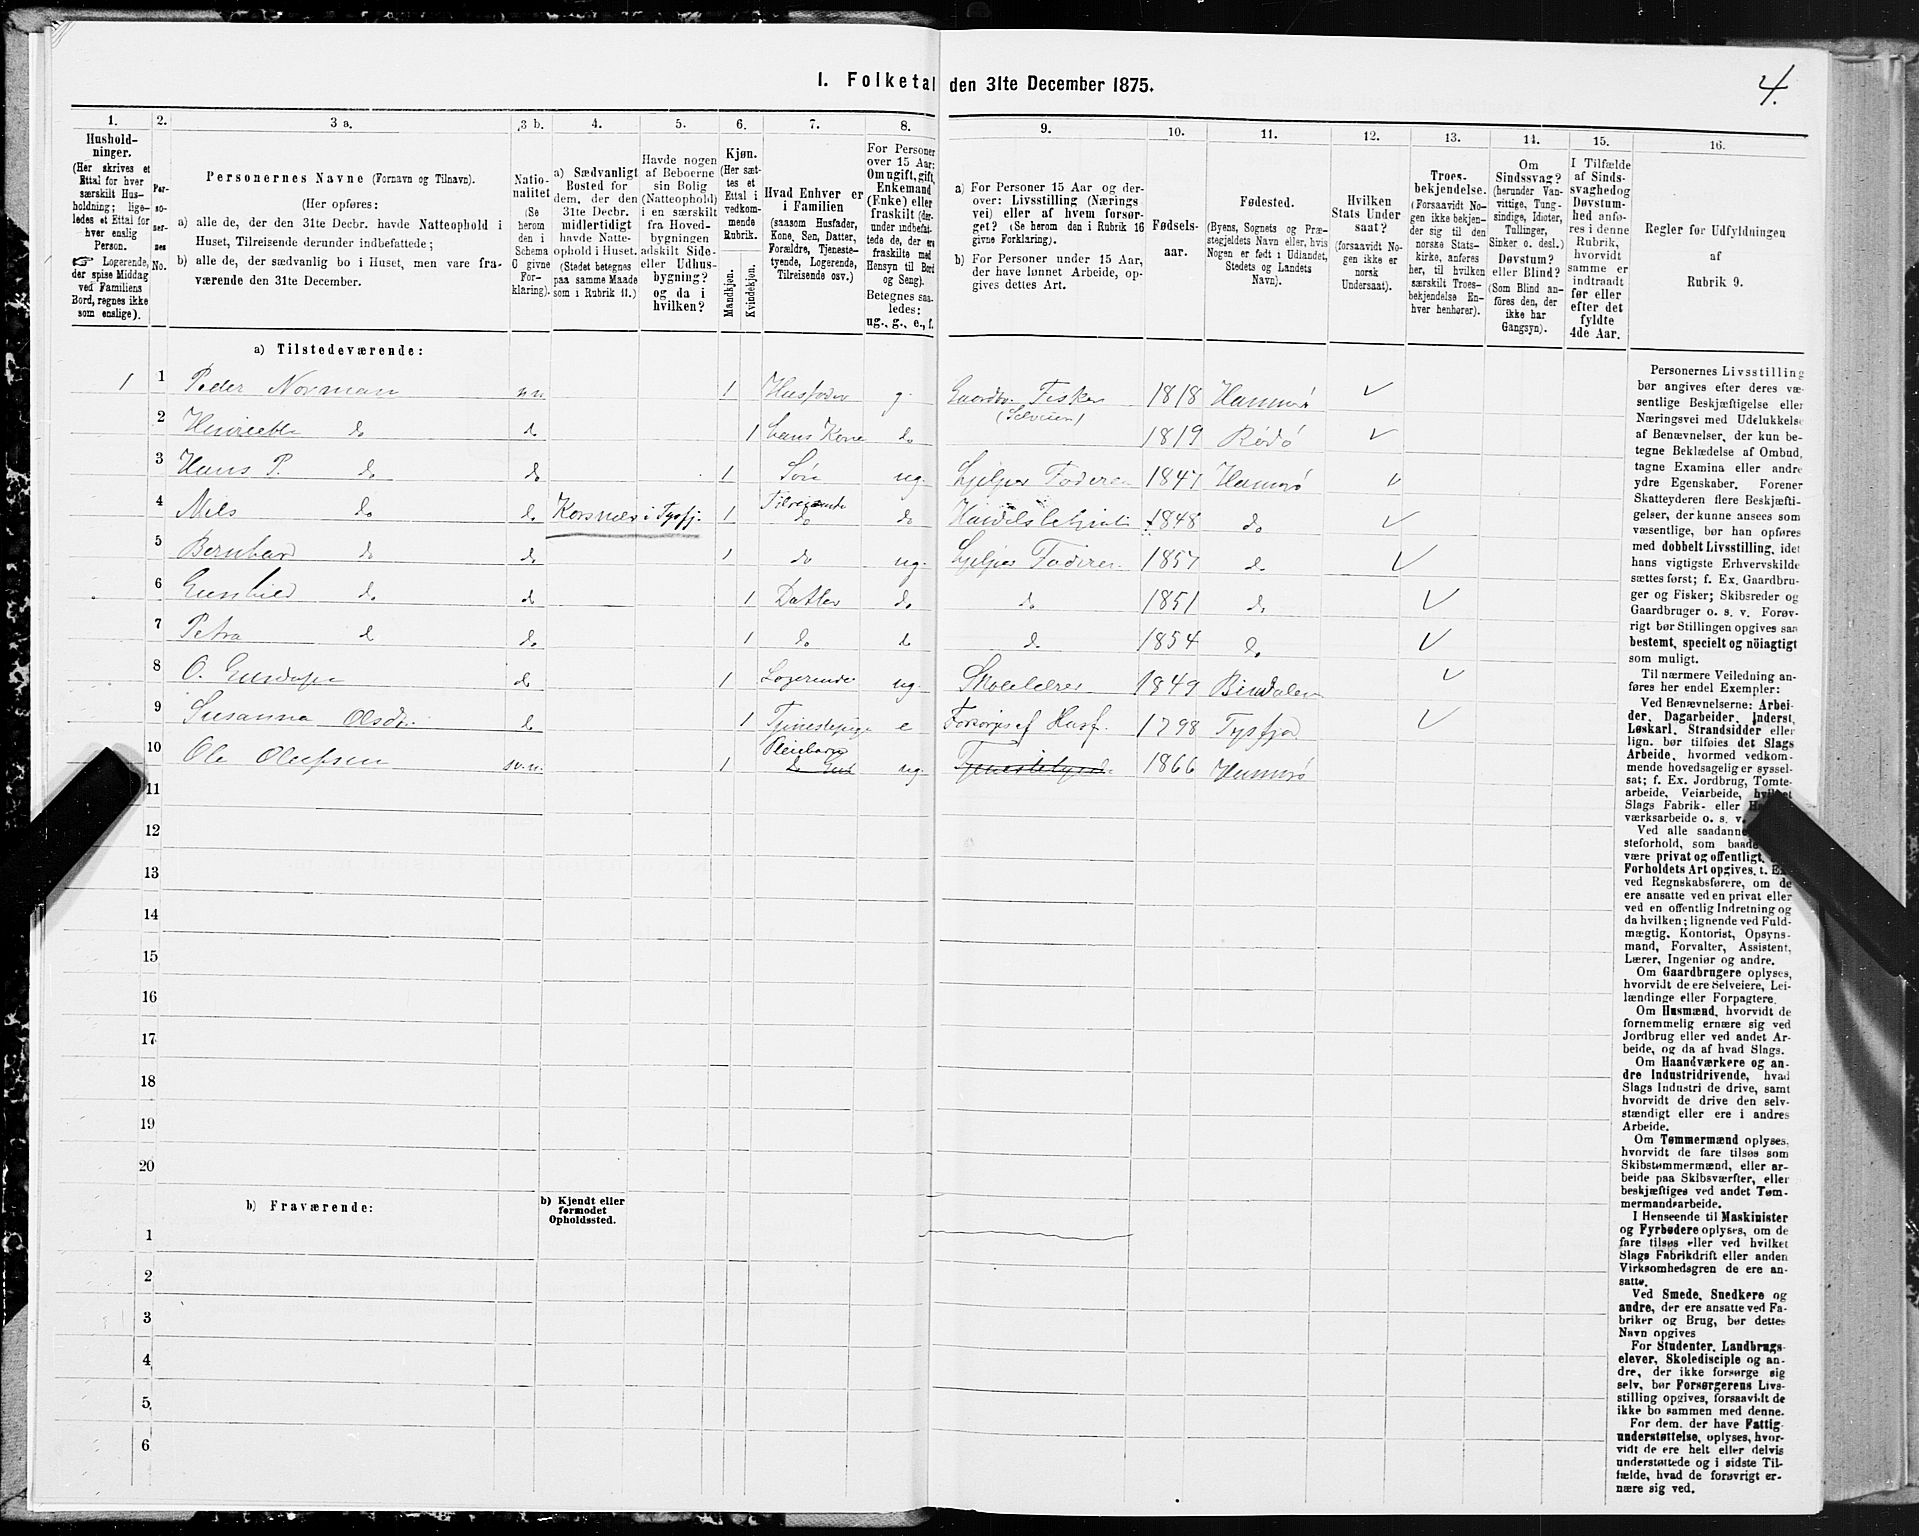 I. Folketal den 31te December 1875.
4.
1. 2. 3 a. 3 b. 4. 5. 6. 7. 8. 9. 10. 11. 12. 13. 14. 15. 16.
Husholdninger.
(Her skrives et
Ettal for hver
særskilt Husholdning; ligeledes
et Ettal for
hver enslig
Person.
☞ Logerende,
der spise Middag
ved Familiens
Bord, regnes ikke
som enslige).
Personernes No.
Personernes Navne (Fornavn og Tilnavn).
(Her opføres:
a) alle de, der den 31te Decbr. havde Natteophold i
Huset, Tilreisende derunder indbefattede;
b) alle de, der sædvanlig bo i Huset, men vare fraværende
den 31te December.
Nationalitet
(Se
herom
den i
Schema
O givne
Forklaring).
a) Sædvanligt
Bosted for
dem, der den
31te Decbr.
midlertidigt
havde Natteophold
i Huset.
(Stedet betegnes
paa samme Maade
som i Rubrik 11.)
Havde nogen
af Beboerne
sin Bolig
(Natteophold)
i en særskilt
fra Hovedbygningen
adskilt Side-
eller Udhusbygning?
og da i
hvilken?
Kjøn.
(Her sættes
et
Ettal i
vedkommende
Rubrik.
Mandkjøn.
Kvindekjøn.
Hvad Enhver er
i Familien
(saasom Husfader,
Kone, Søn, Datter,
Forældre, Tjenestetyende,
Logerende,
Tilreisende osv.)
For Personer
over 15 Aar:
Om ugift, gift,
Enkemand
(Enke) eller
fraskilt (derunder
indbefattede
de, der ere
fraskilte med
Hensyn til Bord
og Seng).
Betegnes saaledes:
ug., g., e., f.
a) For Personer 15 Aar og derover:
Livsstilling (Næringsvei)
eller af hvem forsørget?
(Se herom den i Rubrik 16
givne Forklaring).
b) For Personer under 15 Aar,
der have lønnet Arbeide, opgives
dettes Art.
Fødselsaar.
Fødested.
(Byens, Sognets og Præstegjeldets
Navn eller, hvis
Nogen er født i Udlandet,
Stedets og Landets
Navn).
Hvilken
Stats Undersaat?
(forsaavidt Nogen
ikke er
norsk
Undersaat).
Troesbekjendelse.
(Forsaavidt Nogen
ikke bekjender
sig til den
norske Statskirke,
anføres
her, til hvilken
særskilt Troesbekjendelse
Enhver
henhører).
Om
Sindssvag?
(herunder Vanvittige,
Tungsindige,
Idioter,
Tullinger,
Sinker o. desl.)
Døvstum?
eller Blind?
(Som Blind anføres
den, der
ikke har
Gangsyn).
I Tilfælde
af Sindssvaghed
og
Døvstumhed
anføres
i denne
Rubrik,
hvorvidt
samme er
indtraadt
før eller
efter det
fyldte
4de Aar.
Regler for Udfyldningen
af
Rubrik 9.
a) Tilstedeværende:
1 1 Peder Norman nn 1 Husfader g. Gaardbr. Fisker (Selveier) 1818 Hamarø
2 Henriette do do 1 hans Kone do 1819 Rødø
3 Hans P. do do 1 Søn ug. hjelper Faderen 1847 Hamarø
4 Niels do do Korsnæs i Tysfj. 1 Tilreisende do do 1848 do
5 Bernhard do do 1 do ug. hjelper Faderen 1857 do
6 Gunhild do do 1 Datter do do 1851 do
7 Petra do do 1 do do do 1854 do
8 O. do 1 Logerende ug. Skolelærer 1849 Bindalen
9 Susanna Olsdr. do 1 e Forsørges af Husf. 1798 Tysfjor
10 Ole Olufsen 1 Pleiebarn ug. 1866 Hamarø
11
12
13
14
15
16
17
18
19
20
b) Fraværende:
b) Kjendt eller
formodet
Opholdssted.
1
2
3
4
5
6
Personernes Livsstilling
bør angives efter deres væsentlige
Beskjæftigelse eller
Næringsvei med Udelukkelse
af Benævnelser, der kun betegne
Beklædelse af Ombud,
tagne Examina eller andre
ydre Egenskaber. Forener
Skatteyderen flere Beskjæftigelser,
der kunne ansees som
væsentlige, bør han opføres
med dobbelt Livsstilling, idet
hans vigtigste Erhvervskilde
sættes først; f. Ex. Gaardbruger
og Fisker; Skibsreder og
Gaardbruger o. s. v. Forøvrigt
bør Stillingen opgives saa
bestemt, specielt og nöiagtigt
som muligt.
Til nærmere Veiledning anføres
her endel Exempler:
Ved Benævnelserne: Arbeider,
Dagarbeider, Inderst,
Løskarl, Strandsidder eller
lign. bør tilføies det Slags
Arbeide, hvormed vedkommende
hovedsagelig er sysselsat;
f. Ex. Jordbrug, Tomtearbeide,
Veiarbeide, hvilket
Slags Fabrik- eller
værksarbeide o. s. v.
Ved alle saadanne
steforhold, som baade
være privat og offentligt,
Forholdets Art opgives, t. Ex.
ved Regnskabsførere, om de
ere ansatte ved en privat eller
ved en offentlig Indretning og
da hvilken; lignende ved Fuldmægtig,
Kontorist, Opsynsmand,
Forvalter, Assistent,
Lærer, Ingeniør og andre.
Om Gaardbrugere oplyses,
hvorvidt de ere Selveiere, Leilændinge
eller Forpagtere.
Om Husmænd, hvorvidt de
fornemmelig ernære sig ved
Jordbrug eller ved andet Arbeide,
og da af hvad Slags.
Om Haandværkere og andre
Industridrivende, hvad
Slags Industri de drive, samt
hvorvidt de drive den selvstændigt
eller ere i andres
Arbeide.
Om Tømmermænd oplyses,
hvorvidt de fare tilsøs som
Skibstømmermænd, eller arbeide
paa Skibsværfter, eller
beskjæftiges ved andet Tømmermandsarbeide.
I Henseende til Maskinister
og Fyrbødere oplyses, om de
fare tilsøs eller ved hvilket
Slags Fabrikdrift eller anden
Virksomhedsgren de ere ansatte.
Ved Smede, Snedkere og
andre, der ere ansatte ved Fabriker
og Brug, bør dettes
Navn opgives
For Studenter, Landbrugselever,
Skoledisciple og andre,
der ikke forsørge sig
selv, bør Forsørgerens Livsstilling
opgives, forsaavidt de
ikke bo sammen med denne.
For dem, der have Fattigunderstøttelse,
oplyses, hvorvidt
de ere helt eller delvis
understøttede og i sidste Tilfælde,
hvad de forøvrigt ernære
sig ved.